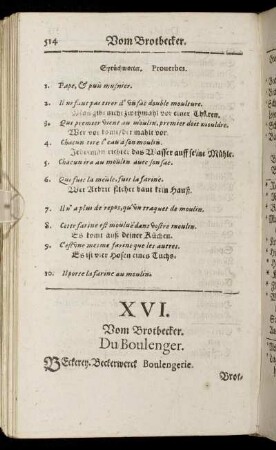 514 Vom Brotbecker.
Sprüchwörter. Proverbes.
1. Pape, & puis musnier.
2. Il ne faut pas tirer d'un sac double moulture.
Man gibt nicht zweymahl vor einer Thüren.
3. Que premier vient au moulin, premier doit mouldre.
Wer vor komt, der mahlt vor.
4. Chacun tire l'eau a son moulin.
Jederman richtet das Wasser auff seine Mühle.
5. Chacun ira au moulin avec son sac.
6. Qui fuit la meule, fuit la farine.
Wer Arbeit fliehet baut kein Hauß.
7. Il n'a plus de repos, qu'un traquet de moulin.
8. Ceste farine est moulue dans vostre moulin.
Es komt auß deiner Küchen.
5. C'est une mesme farine que les autres.
Es ist vier Hosen eines Tuchs.
10. Il porte la farine au moulin.
XVI.
Vom Brotbecker.
Du Boulenger.
BEckerey. Beckerwerck Boulengerie.
Brot-